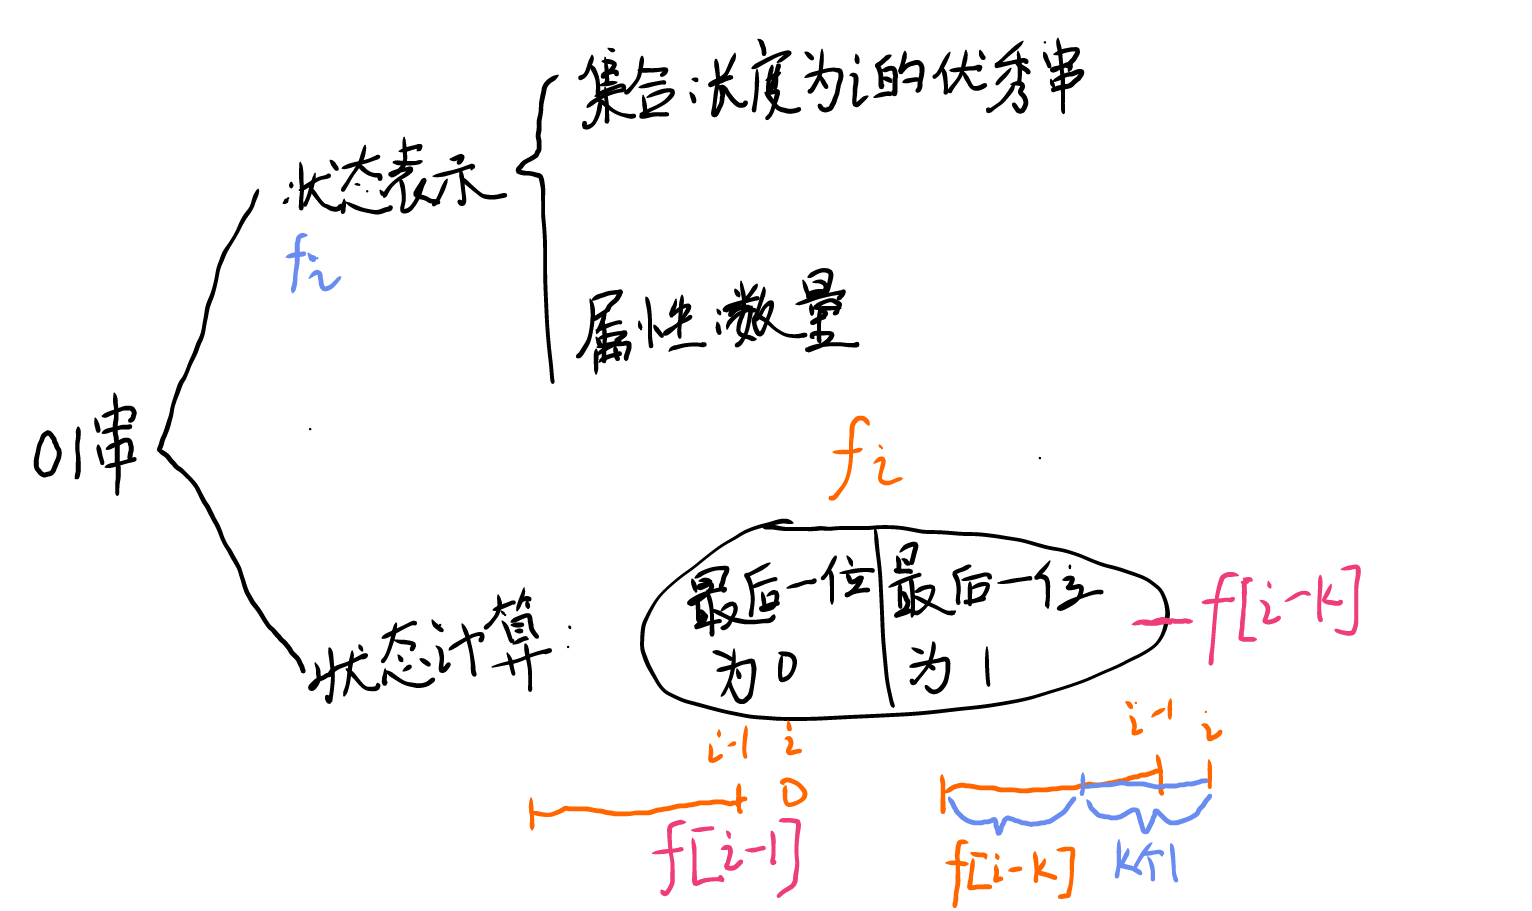 01串
状态表示
fi
集合:长度为i的优秀串
属性:数量
状态计算:
fi
最后一位为0
最后一位为1
f[i-k]
i-1 i
0
f[i-1]
i-1 i
f[i-k]
k个1